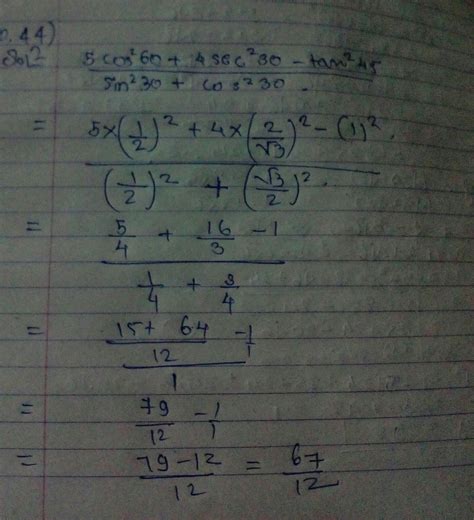 0.44)
Sol? 5 cos²60 + 4 sec²30 - tan²45
sin²30 + cos²30.
= 5×(1/2)² + 4×(2/√3)² - (1)².
(1/2)² + (√3/2)².
= 5/4 + 16/3 - 1
1/4 + 3/4
= 15+ 64/12 - 1/1
1
= 79/12 - 1/1
= 79-12/12 = 67/12